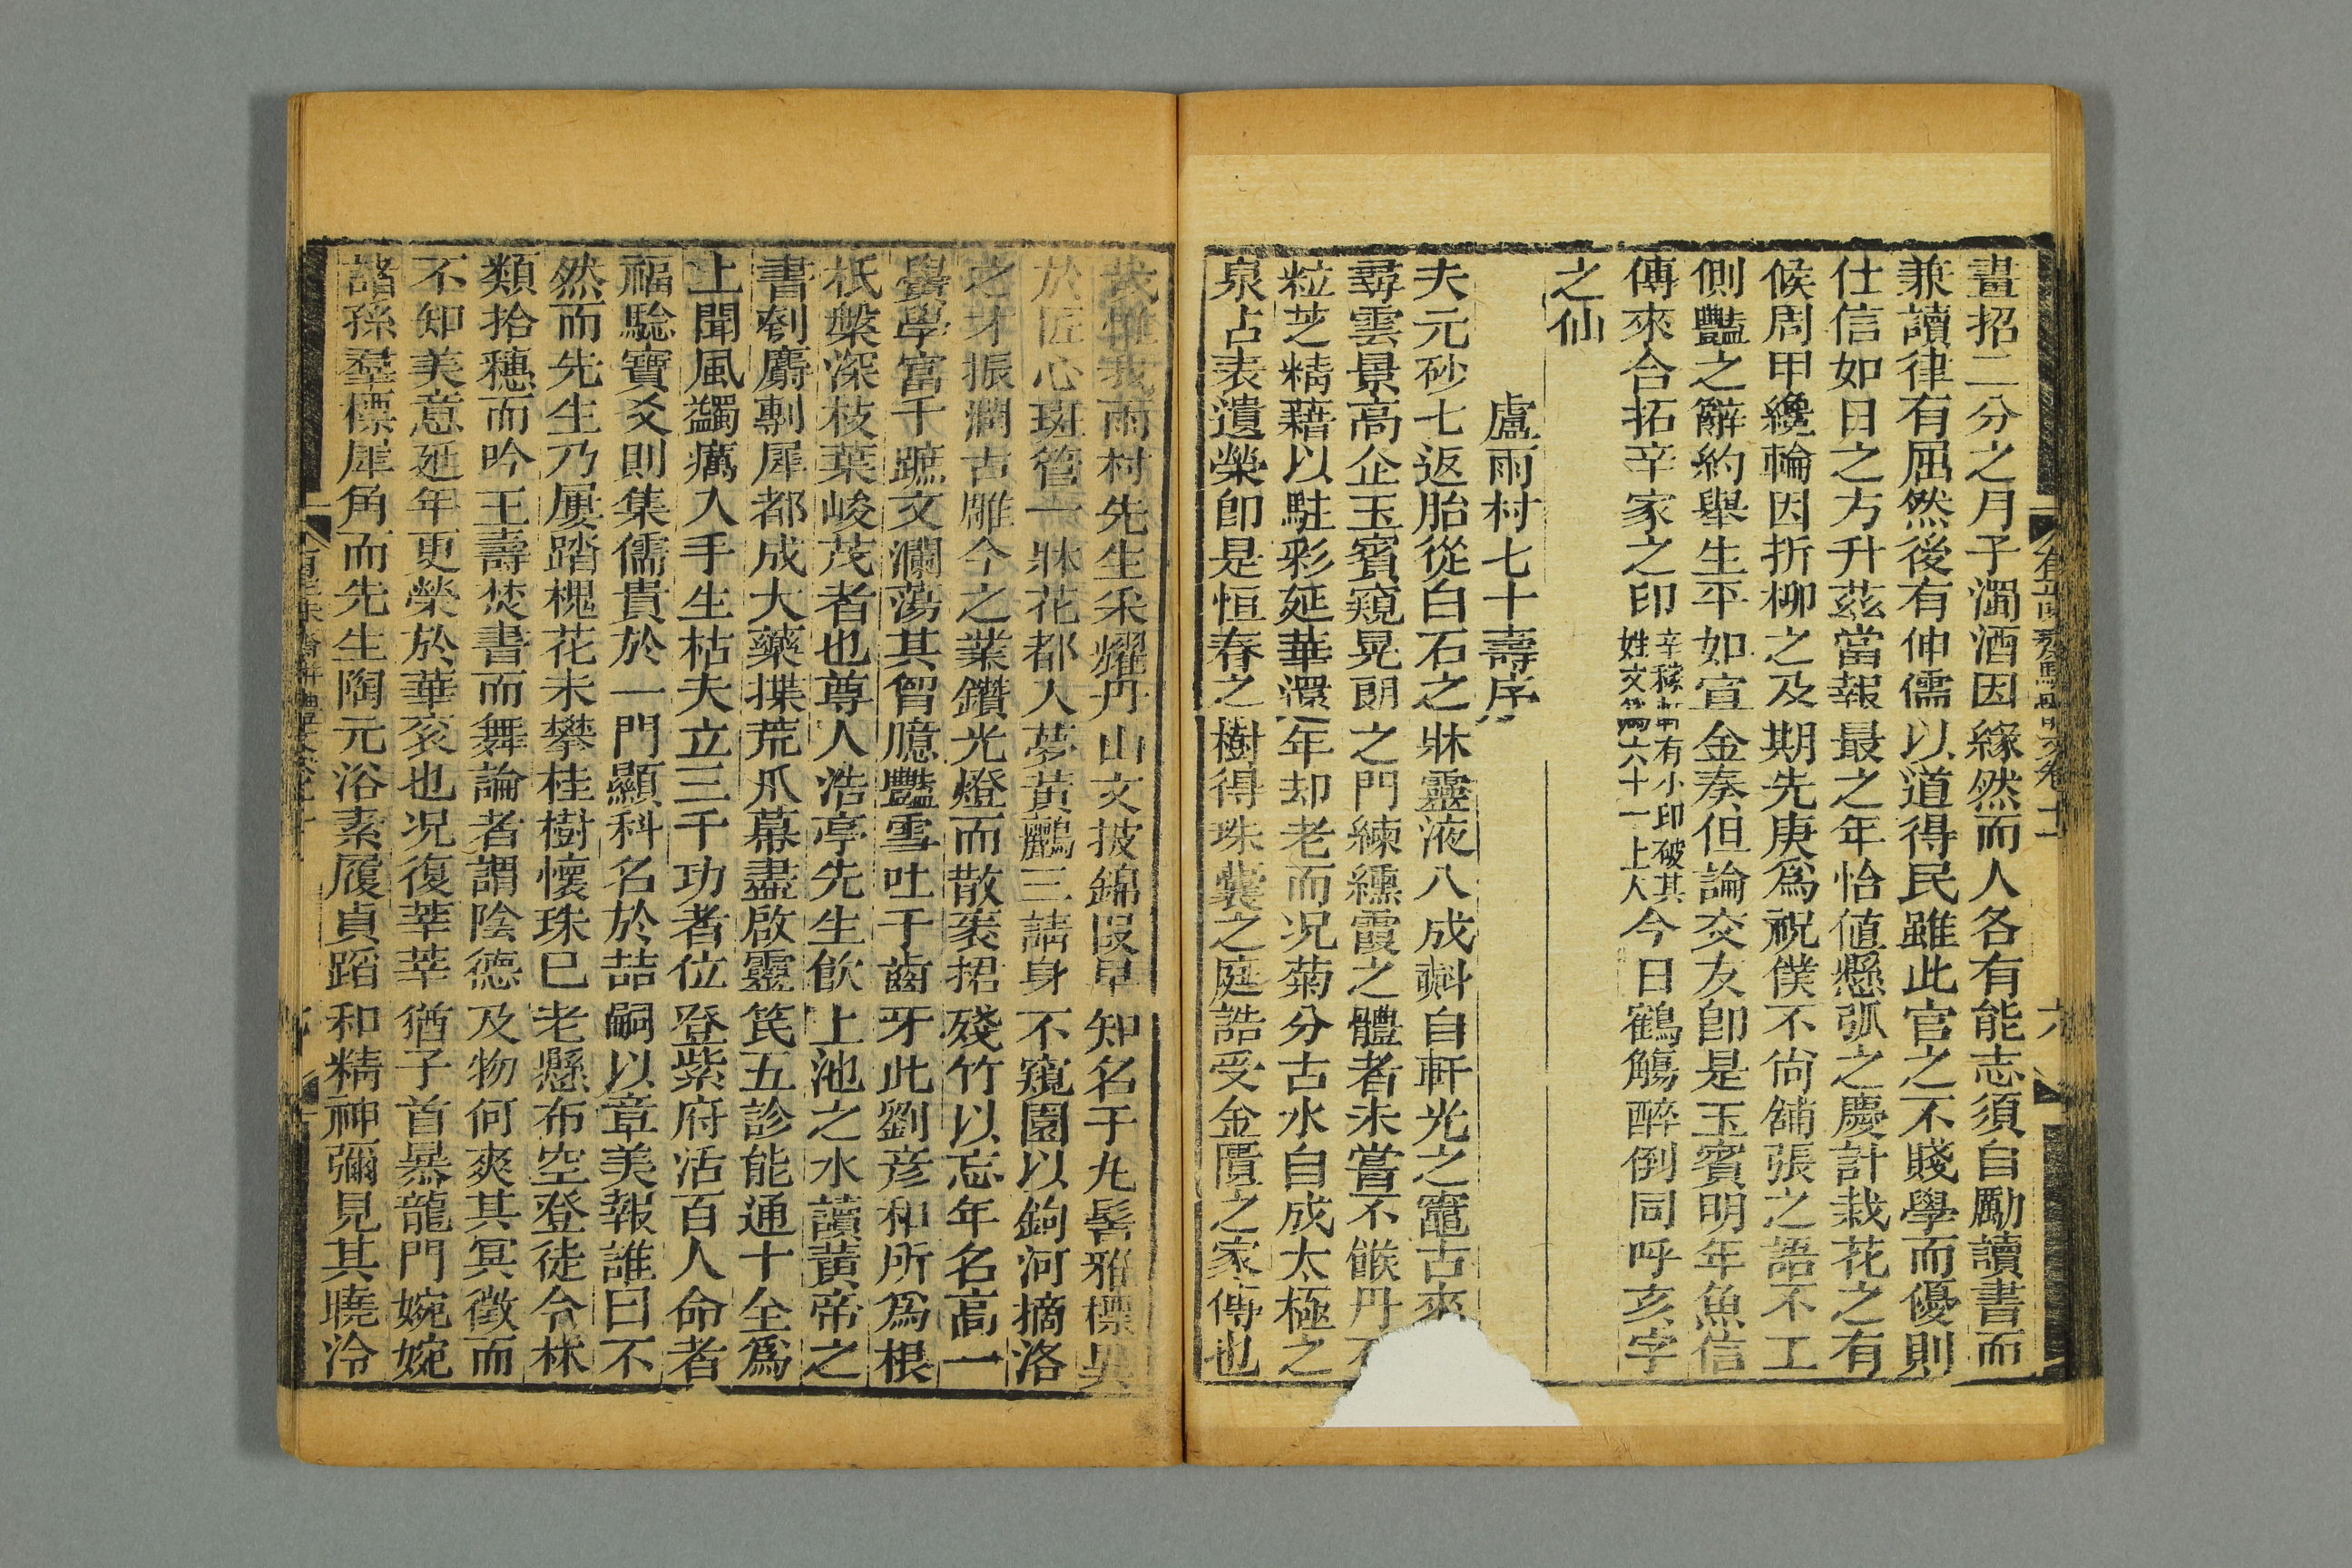 畫招二分之月予濁酒因緣然而人各有能志須自勵讀書而
兼讀律有屈然後有伸儒以道得民雖此官之不賤學而優則
仕信如日之方升茲當報最之年恰值懸弧之慶計栽花之有
候周甲纔輪因折柳之及期先庚爲祝僕不尙舖張之語不工
側豔之辭約舉生平如宣金奏但論交友卽是玉賓明年魚信
傳來合拓辛家之印
辛稼軒有小印破其
姓文爲六十一上人
今日鶴觴醉倒同呼亥字
之仙
盧雨村七十壽序
夫元砂七返胎從白石之牀靈液八成㪺自軒光之竈古來
尋雲景高企玉賓窺晃朗之門練纁霞之體者未嘗不餱丹
粒芝精藉以駐彩延華還年却老而况菊分古水自成太極之
泉占表遺榮卽是恒春之樹得珠囊之庭誥受金匱之家傳也
哉惟我雨村先生采耀丹山文披錦段早知名于九髫雅標異
於匠心斑管一牀花都入夢黃鸝三請身不窺園以鉤河摘洛
之才振瀾古雕今之業鑽光燈而散袠捃殘竹以忘年名高一
黌學富千蹠文瀾蕩其胷臆豔雪吐于齒牙此劉彥和所爲根
柢槃深枝葉峻茂者也尊人浩亭先生飮上池之水讀黃帝之
書刳麝剸犀都成大藥揲荒爪幕盡啟靈笢五診能通十全爲
上聞風蠲癘入手生枯夫立三千功者位登紫府活百人命者
福驗寶爻則集儒貴於一門顯科名於喆嗣以章美報誰曰不
然而先生乃屢踏槐花未攀桂樹懷珠巳老懸布空登徒令林
類拾穗而吟王壽焚書而舞論者謂陰德及物何爽其冥徵而
不知美意延年更榮於華衮也况復莘莘猶子首暴龍門婉婉
諸孫羣標犀角而先生陶元浴素履貞蹈和精神彌見其曉泠